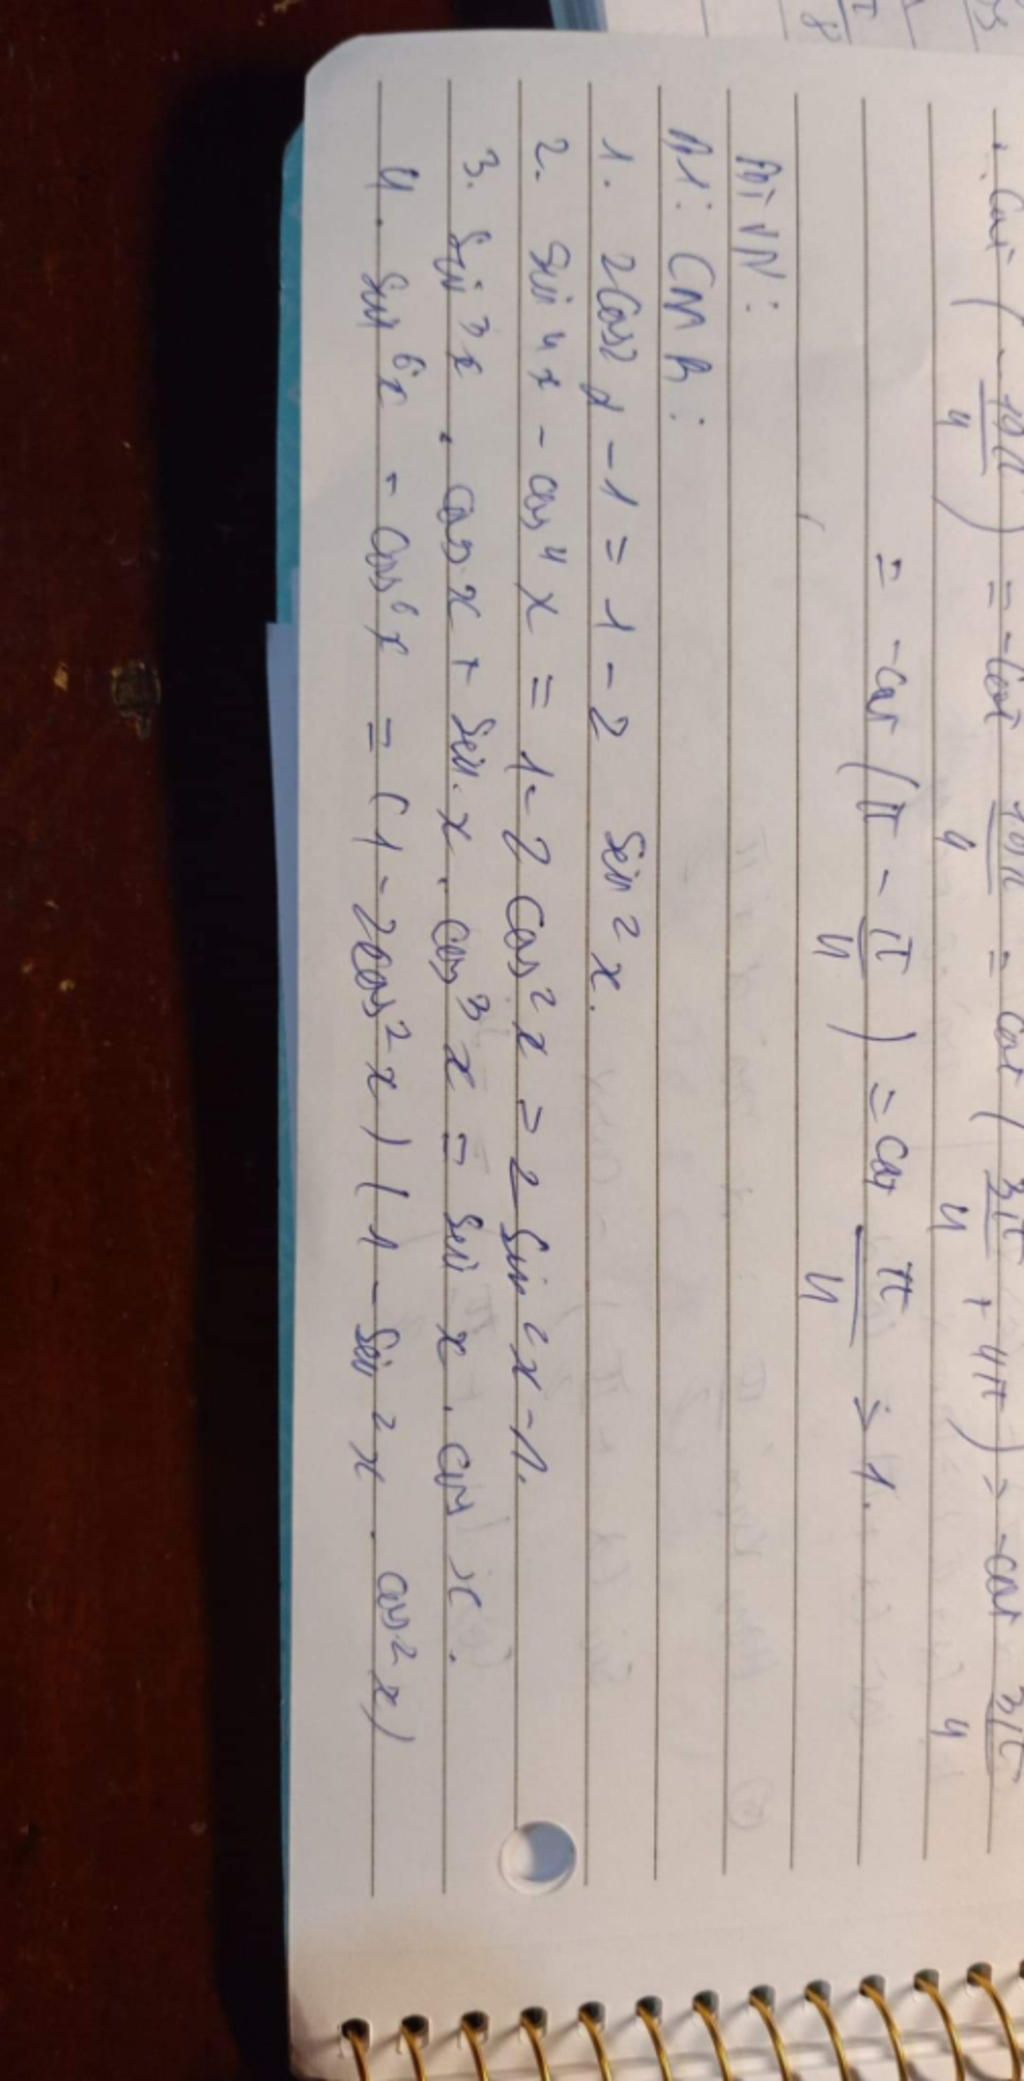 cos ( - 19π/4 ) = -cos 19π/4 = cos ( 3π/4 + 4π ) = -cos 3π/4
= -cos ( π - π/4 ) = cos π/4 = 1.
BTVN:
B1: CMR:
1. 2cos² x - 1 = 1 - 2 sin² x.
2. sin⁴ x - cos⁴ x = 1 - 2 cos² x = 2 sin² x - 1.
3. sin³ x . cos x + sin x . cos³ x = sin x . cos x .
4. sin⁶ x - cos⁶ x = ( 1 - 2cos² x ) ( 1 - sin² x . cos² x )